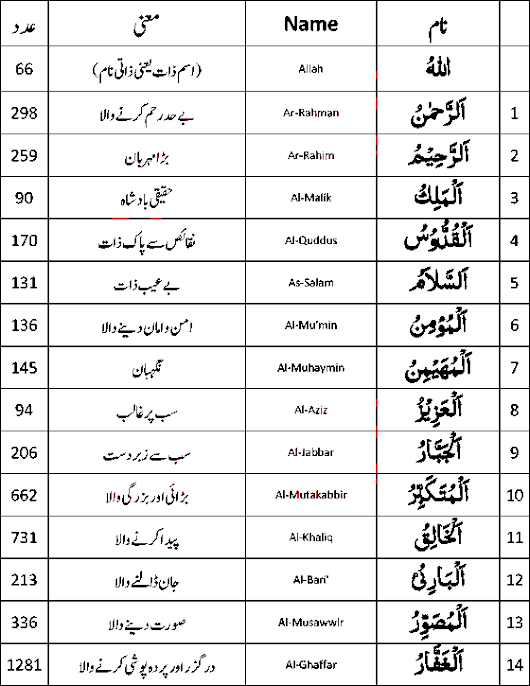 نام Name معنی عدد
اَللهُ Allah (اسم ذات یعنی ذاتی نام) 66
1 اَلرَّحْمٰنُ Ar-Rahman بے حد رحم کرنے والا 298
2 اَلرَّحِيْمُ Ar-Rahim بڑا مہربان 259
3 اَلْمَلِكُ Al-Malik حقیقی بادشاہ 90
4 اَلْقُدُّوْسُ Al-Quddus نقائص سے پاک ذات 170
5 اَلسَّلَامُ As-Salam بے عیب ذات 131
6 اَلْمُؤْمِنُ Al-Mu'min امن و امان دینے والا 136
7 اَلْمُهَيْمِنُ Al-Muhaymin نگہبان 145
8 اَلْعَزِيْزُ Al-Aziz سب پر غالب 94
9 اَلْجَبَّارُ Al-Jabbar سب سے زبردست 206
10 اَلْمُتَكَبِّرُ Al-Mutakabbir بڑائی اور بزرگی والا 662
11 اَلْخَالِقُ Al-Khaliq پیدا کرنے والا 731
12 اَلْبَارِئُ Al-Bari' جان ڈالنے والا 213
13 اَلْمُصَوِّرُ Al-Musawwir صورت دینے والا 336
14 اَلْغَفَّارُ Al-Ghaffar درگزر اور پردہ پوشی کرنے والا 1281